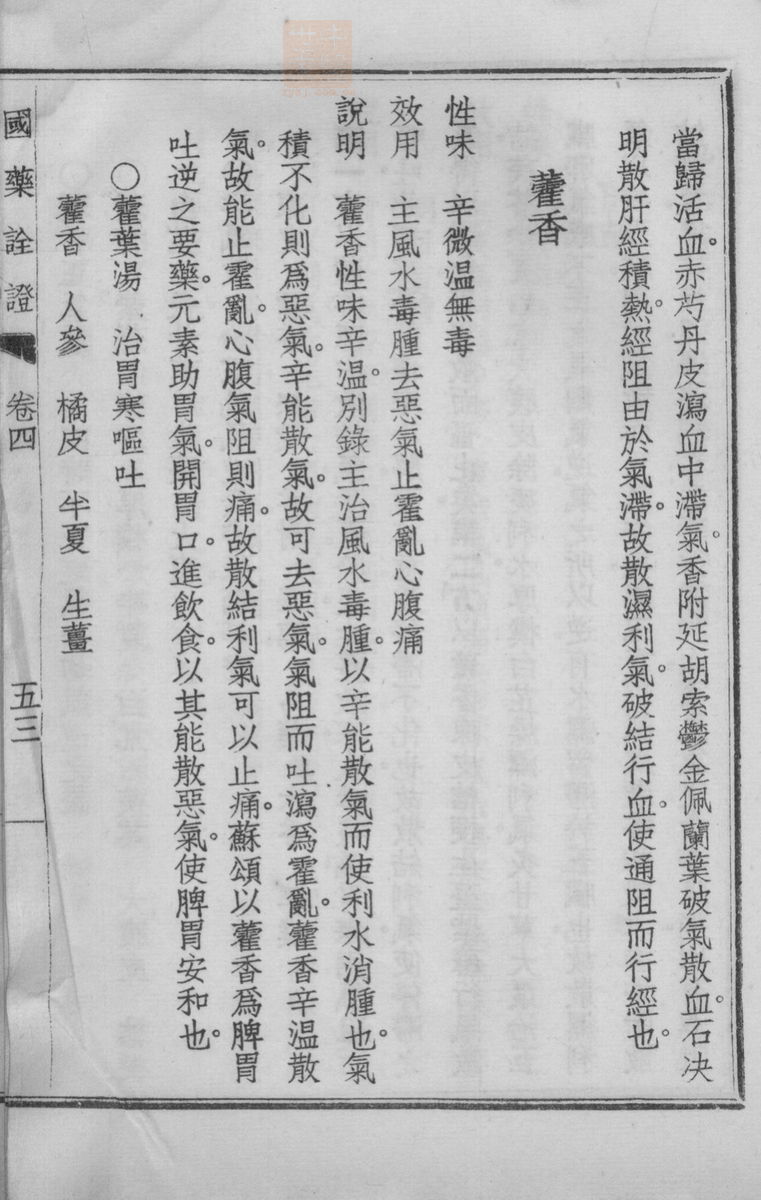 當歸活血。赤芍丹皮瀉血中滯氣。香附延胡索鬱金佩蘭葉破氣散血。石決
明散肝經積熱。經阻由於氣滯。故散濕利氣。破結行血。使通阻而行經也。
藿香
性味　辛微温無毒
效用　主風水毒腫去惡氣止霍亂心腹痛
說明一　藿香性味辛温。別錄主治風水毒腫。以辛能散氣而使利水消腫也。氣
積不化則爲惡氣。辛能散氣。故可去惡氣。氣阻而吐瀉爲霍亂。藿香辛温散
氣。故能止霍亂。心腹氣阻則痛。故散結利氣可以止痛。蘇頌以藿香爲脾胃
吐逆之要藥。元素助胃氣。開胃口。進飲食。以其能散惡氣。使脾胃安和也。
○藿葉湯　治胃寒嘔吐
藿香　人參　橘皮　半夏　生薑
國藥詮證　卷四　五三